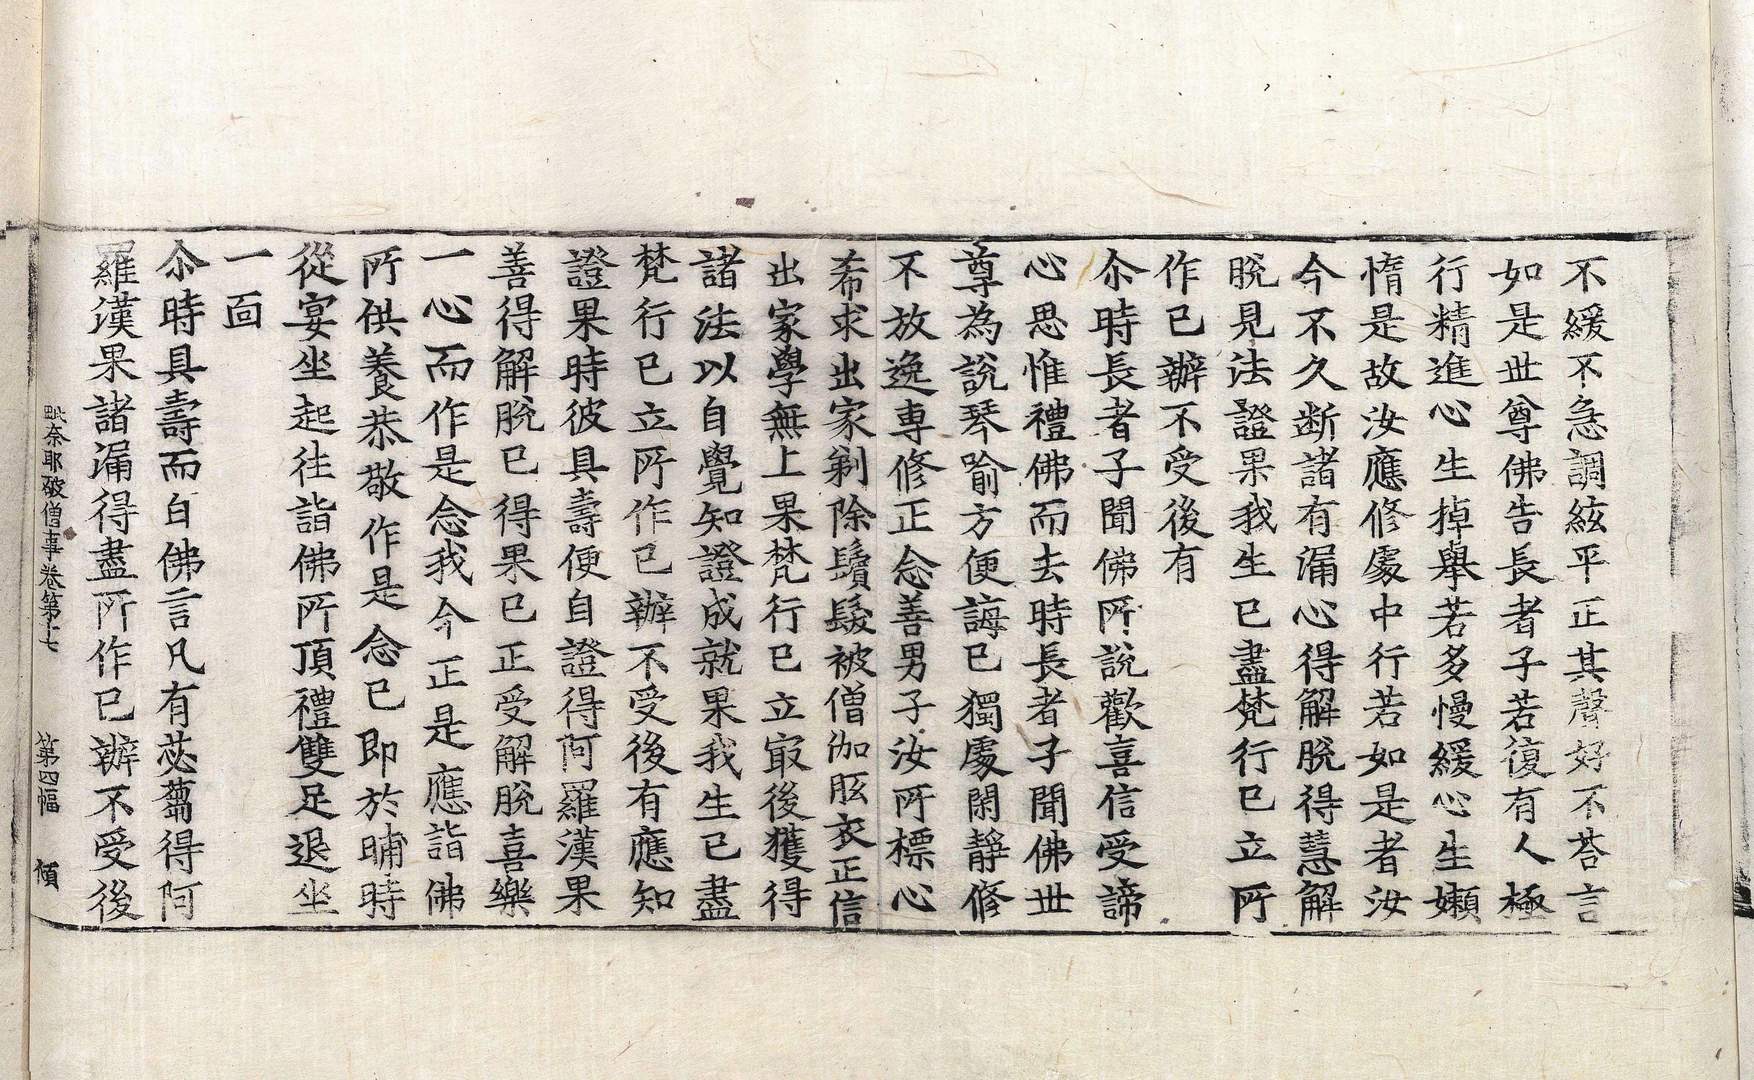 不緩不急調絃平正其聲好不荅言
如是世尊佛告長者子若復有人極
行精進心生掉舉若多慢緩心生嬾
惰是故汝應修處中行若如是者汝
今不久断諸有漏心得解脫得慧解
脫見法證果我生已盡梵行已立所
作已辦不受後有
尒時長者子聞佛所說歡喜信受諦
心思惟禮佛而去時長者子聞佛世
尊為說琴喻方便誨已獨處閑靜修
不放逸專修正念善男子汝所標心
希求出家剃除鬚髮被僧伽胘衣正信
出家學無上果梵行已立㝡後獲得
諸法以自覺知證成就果我生已盡
梵行已立所作已辦不受後有應知
證果時彼具壽便自證得阿羅漢果
善得解脫已得果已正受解脫喜樂
一心而作是念我今正是應詣佛
所供養恭敬作是念已即於晡時
從宴坐起往詣佛所頂禮雙足退坐
一面
尒時具壽而白佛言凡有苾蒭得阿
羅漢果諸漏得盡所作已辦不受後
毗奈耶破僧事卷第十七 第四幅 傾